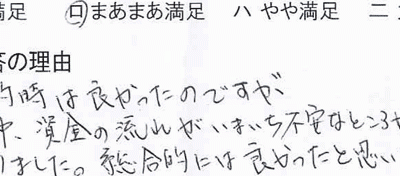 満足 ロ まあまあ満足 ハ やや満足 ニ
答の理由
約時は良かったのですが
中、資金の流れがいまいち不安なところが
りました。総合的には良かったと思い